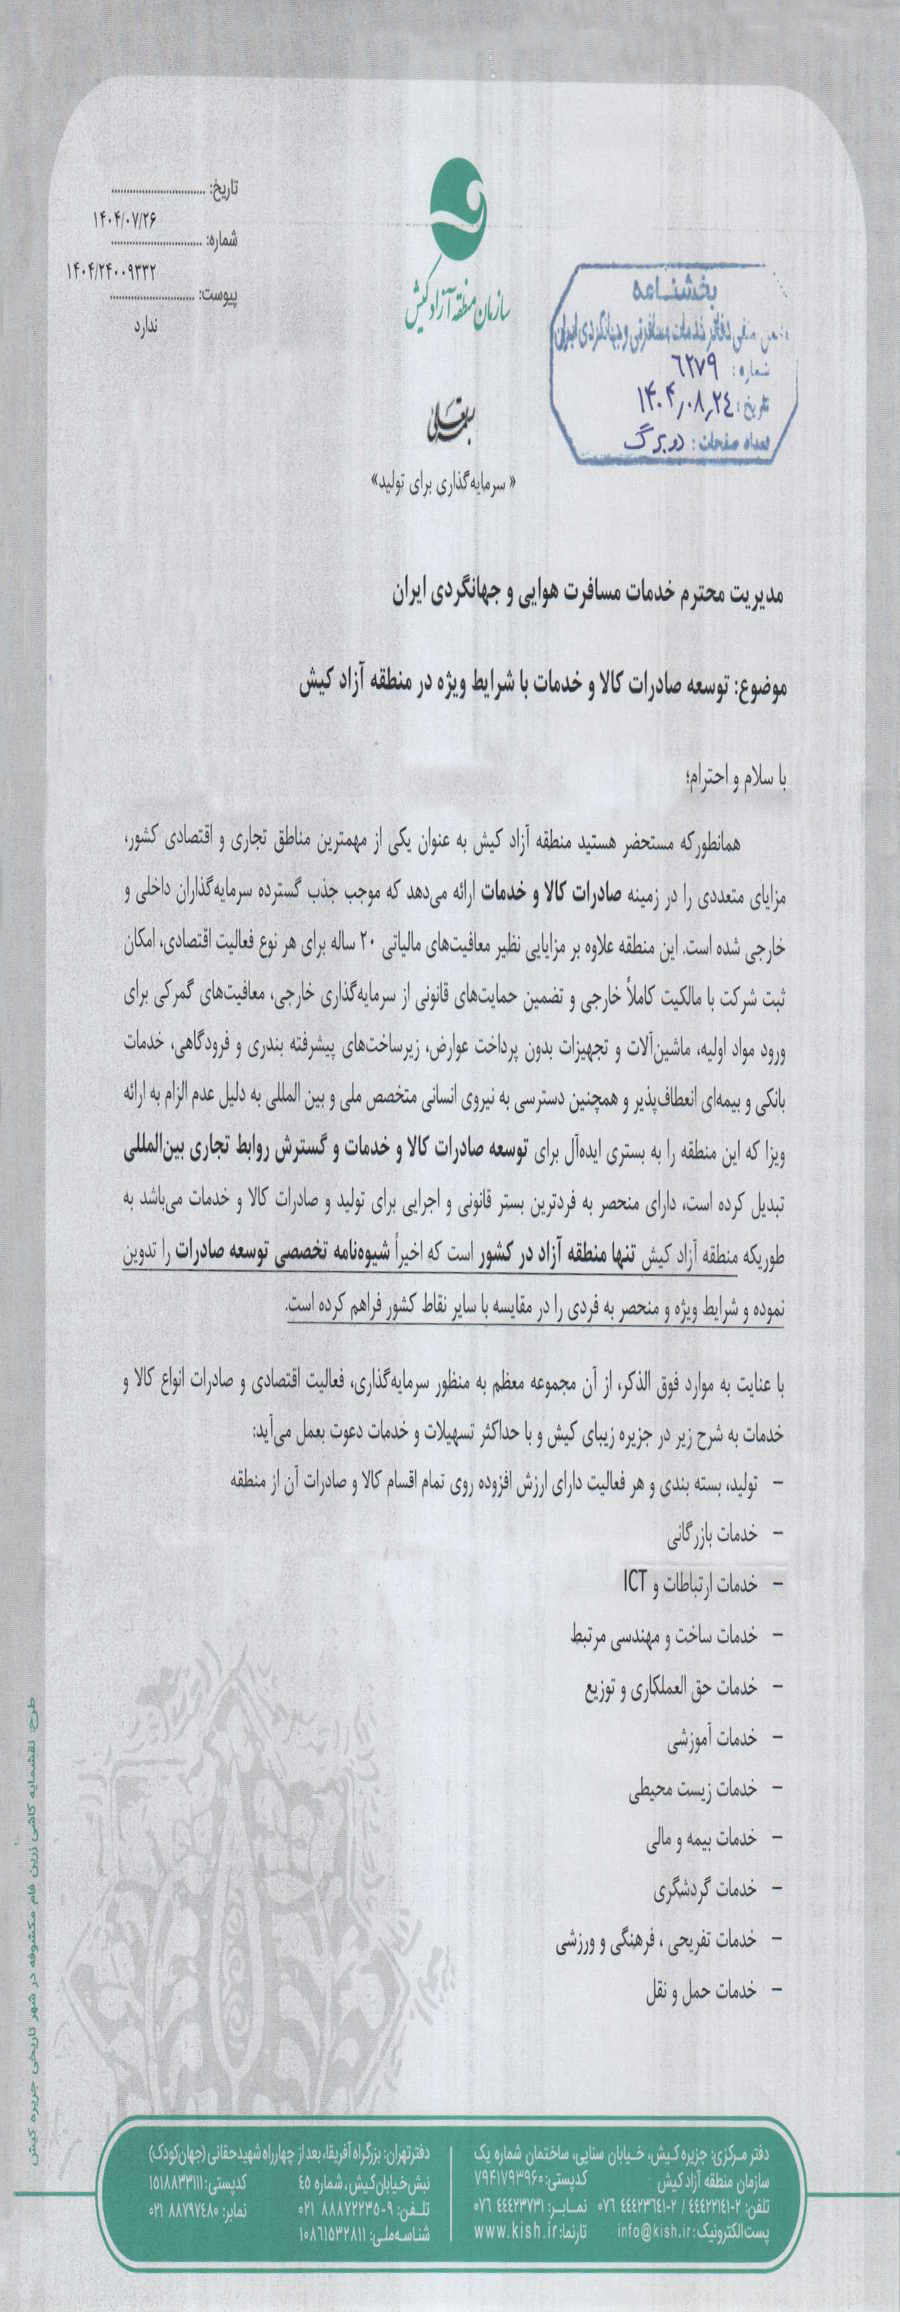 تاریخ: ..............................
۱۴۰۴/۰۷/۲۶
شماره: ..............................
۱۴۰۴/۲۴۰۰۹۳۳۲
پیوست: ............................
ندارد
سازمان منطقه آزاد کیش
بخشنامه
صنفی دفاتر خدمات مسافرتی و جهانگردی ایران
شماره: ۶۲۷۹
تاریخ: ۱۴۰۴٫۰۸٫۲۴
تعداد صفحات: دو برگ
بسمه تعالی
« سرمایه‌گذاری برای تولید»
مدیریت محترم خدمات مسافرت هوایی و جهانگردی ایران
موضوع: توسعه صادرات کالا و خدمات با شرایط ویژه در منطقه آزاد کیش
با سلام و احترام؛
همانطورکه مستحضر هستید منطقه آزاد کیش به عنوان یکی از مهمترین مناطق تجاری و اقتصادی کشور،
مزایای متعددی را در زمینه صادرات کالا و خدمات ارائه می‌دهد که موجب جذب گسترده سرمایه‌گذاران داخلی و
خارجی شده است. این منطقه علاوه بر مزایایی نظیر معافیت‌های مالیاتی ۲۰ ساله برای هر نوع فعالیت اقتصادی، امکان
ثبت شرکت با مالکیت کاملاً خارجی و تضمین حمایت‌های قانونی از سرمایه‌گذاری خارجی، معافیت‌های گمرکی برای
ورود مواد اولیه، ماشین‌آلات و تجهیزات بدون پرداخت عوارض، زیرساخت‌های پیشرفته بندری و فرودگاهی، خدمات
بانکی و بیمه‌ای انعطاف‌پذیر و همچنین دسترسی به نیروی انسانی متخصص ملی و بین المللی به دلیل عدم الزام به ارائه
ویزا که این منطقه را به بستری ایده‌آل برای توسعه صادرات کالا و خدمات و گسترش روابط تجاری بین‌المللی
تبدیل کرده است، دارای منحصر به فردترین بستر قانونی و اجرایی برای تولید و صادرات کالا و خدمات می‌باشد به
طوریکه منطقه آزاد کیش تنها منطقه آزاد در کشور است که اخیراً شیوه‌نامه تخصصی توسعه صادرات را تدوین
نموده و شرایط ویژه و منحصر به فردی را در مقایسه با سایر نقاط کشور فراهم کرده است.
با عنایت به موارد فوق الذکر، از آن مجموعه معظم به منظور سرمایه‌گذاری، فعالیت اقتصادی و صادرات انواع کالا و
خدمات به شرح زیر در جزیره زیبای کیش و با حداکثر تسهیلات و خدمات دعوت بعمل می‌آید:
- تولید، بسته بندی و هر فعالیت دارای ارزش افزوده روی تمام اقسام کالا و صادرات آن از منطقه
- خدمات بازرگانی
- خدمات ارتباطات و ICT
- خدمات ساخت و مهندسی مرتبط
- خدمات حق العملکاری و توزیع
- خدمات آموزشی
- خدمات زیست محیطی
- خدمات بیمه و مالی
- خدمات گردشگری
- خدمات تفریحی ، فرهنگی و ورزشی
- خدمات حمل و نقل
طرح: نقشمایه کاشی زرین فام مکشوفه در شهر تاریخی جزیره کیش
دفتر مرکزی: جزیره کیش، خیابان سنایی، ساختمان شماره یک
سازمان منطقه آزاد کیش کدپستی: ۷۹۴۱۷۹۳۹۶۰
تلفن: ۲-۴۴۴۲۲۱۴۱ / ۲-۴۴۴۲۳۶۴۱ ۰۷۶ نمابر: ۴۴۴۲۳۷۳۱ ۰۷۶
پست الکترونیک: info@kish.ir تارنما: www.kish.ir
دفتر تهران: بزرگراه آفریقا، بعد از چهارراه شهید حقانی (جهان کودک)
نبش خیابان کیش، شماره ۴۵ کدپستی: ۱۵۱۸۸۳۳۱۱۱
تلفن: ۹-۸۸۸۷۲۲۳۵ ۰۲۱ نمابر: ۸۸۷۹۷۴۸۰ ۰۲۱
شناسه ملی: ۱۰۸۶۱۵۳۲۸۱۱